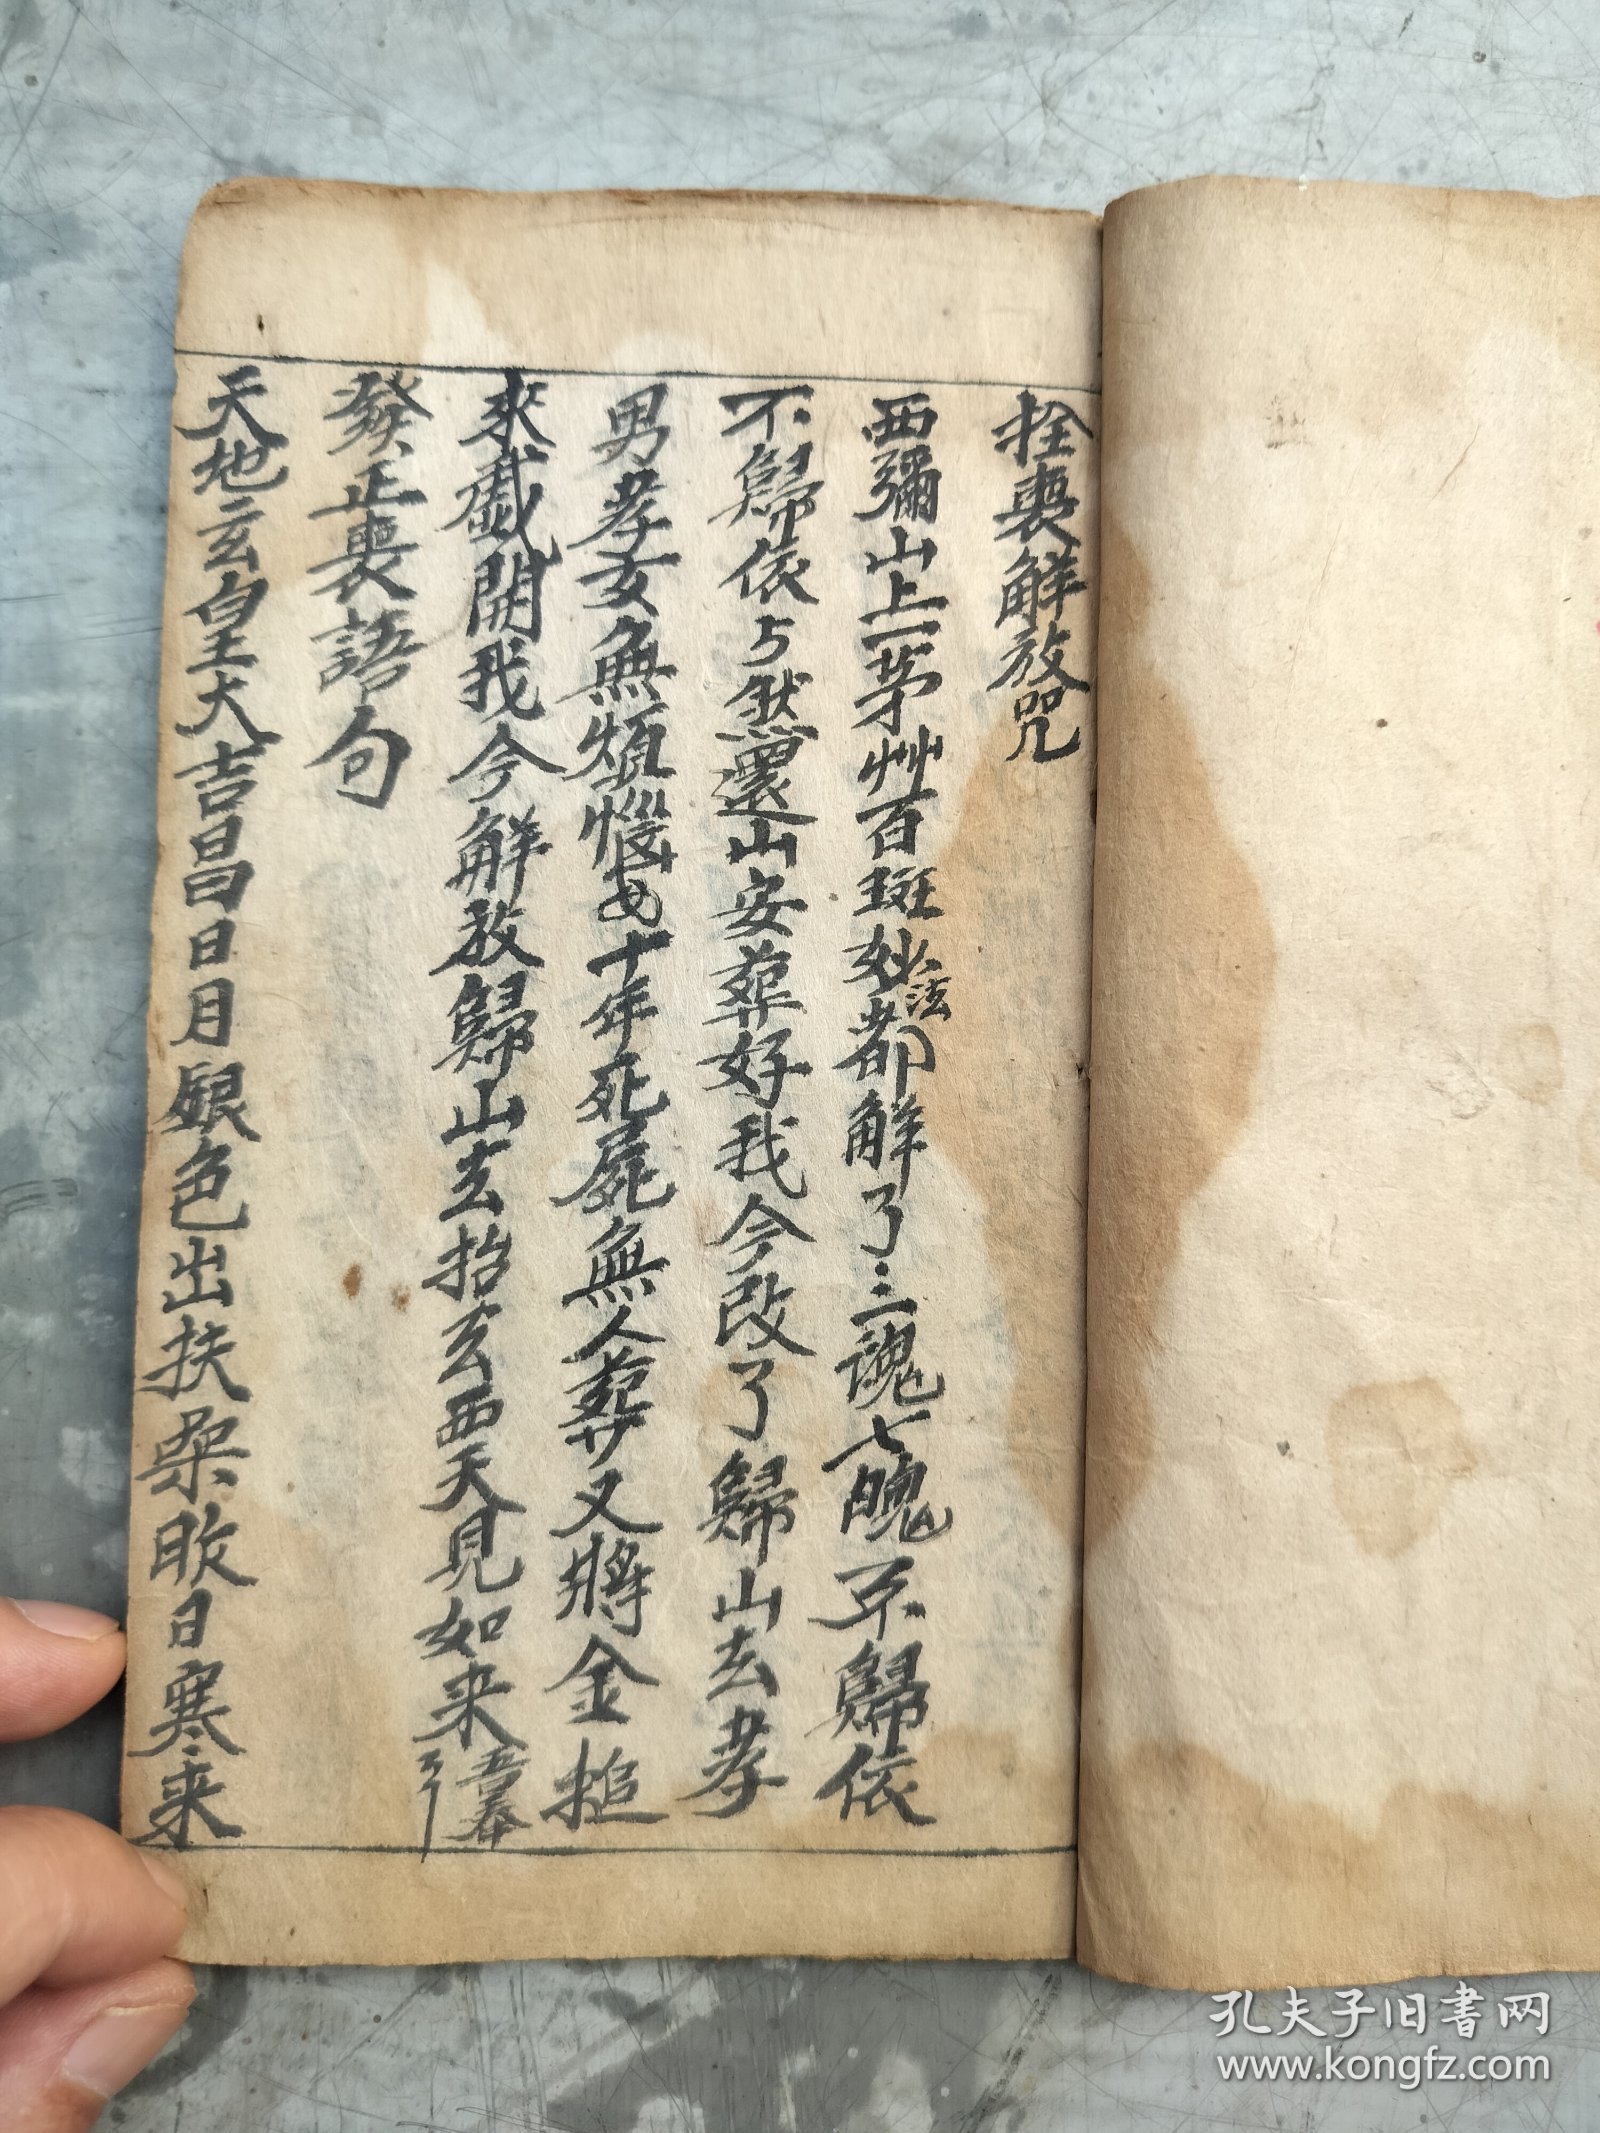 拴喪解放咒
西彌山上茅艸百斑妙法都解了三魂七魄不歸依
不歸依与然還山安葬好我今改了歸山去孝
男孝女無煩惱十年死屍無人葬又將金搥
來開我今解放歸山去抬去西天見如来吾奉
發正喪語句
天地玄皇大吉昌日月銀色出扶桒日寒来
孔夫子旧书网
www.kongfz.com